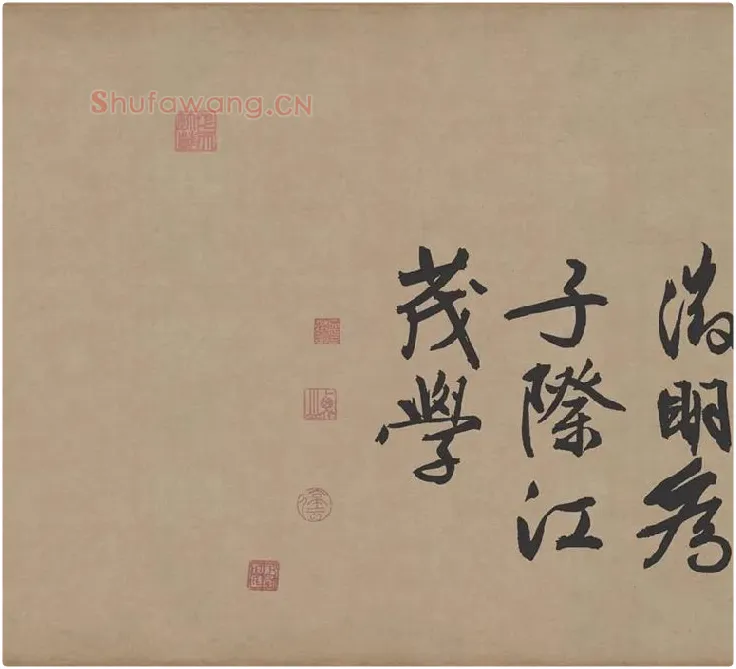 Shufawang.CN
徵明為
子際江
茂學